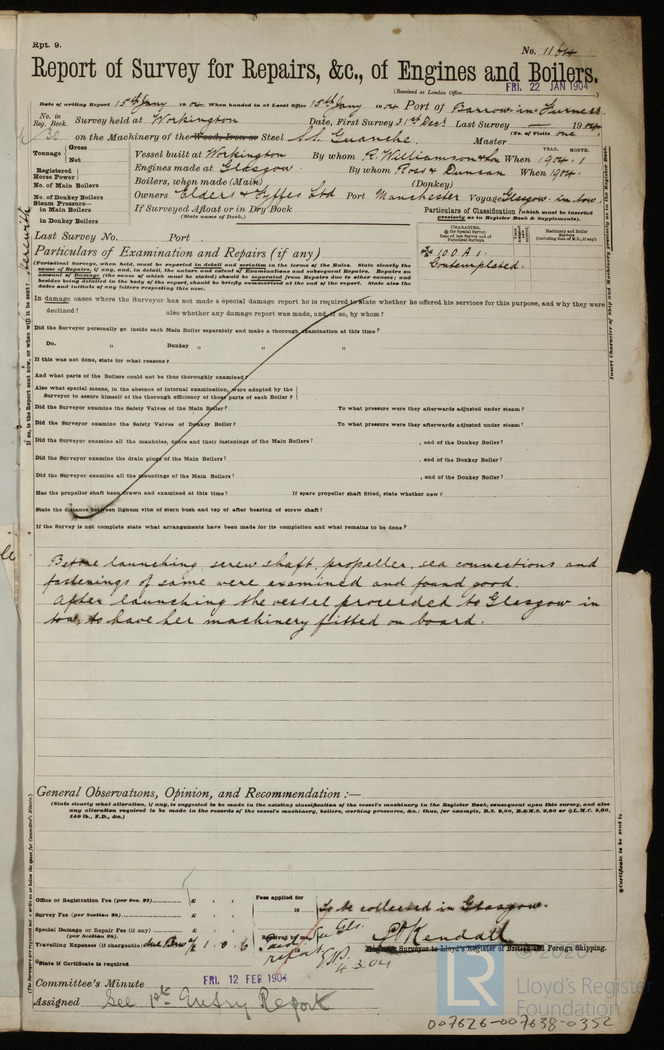 Rpt. 9.
No. 1164
Report of Survey for Repairs, &c., of Engines and Boilers.
(Received at London Office FRI. 22 JAN 1904
Date of writing Report 15th Jany 1904 When handed in at Local Office 15th Jany 1904 Port of Barrow-in-Furness
No. in Reg. Book. Survey held at Workington Date, First Survey 31st Decr Last Survey 1904
(No. of Visits one)
30 on the Machinery of the Wood, Iron or Steel S.S. Guanche. Master
Tonnage Gross Net
Vessel built at Workington By whom R. Williamson & Son When 1904.1
YEAR. MONTH.
Registered Horse Power
Engines made at Glasgow By whom Ross & Duncan When 1904.
No. of Main Boilers
Boilers, when made (Main) (Donkey)
No. of Donkey Boilers
Owners Elders & Fyffes Ltd Port Manchester Voyage Glasgow in tow.
Steam Pressure— in Main Boilers
in Donkey Boilers
If Surveyed Afloat or in Dry Dock
(State name of Dock.)
Particulars of Classification (which must be inserted precisely as in Register Book & Supplements).
Last Survey No. Port
CHARACTER.
Machinery and Boiler Surveys
100 A1.
Contemplated.
Particulars of Examination and Repairs (if any)
(Periodical Surveys, when held, must be reported in detail and seriatim in the terms of the Rules. State clearly the causes of Repairs, if any, and, in detail, the nature and extent of Examinations and subsequent Repairs. Repairs on account of Damage (the cause of which must be stated) should be separated from Repairs due to other causes; and besides being detailed in the body of the report, should be briefly summarised at the end of the report. State also the dates and initials of any letters respecting this case.
In damage cases where the Surveyor has not made a special damage report he is required to state whether he offered his services for this purpose, and why they were
declined? also whether any damage report was made, and if so, by whom?
Did the Surveyor personally go inside each Main Boiler separately and make a thorough examination at this time?
Do. " Donkey " " "
If this was not done, state for what reasons?
And what parts of the Boilers could not be thus thoroughly examined?
Also what special means, in the absence of internal examination, were adopted by the
Surveyor to assure himself of the thorough efficiency of those parts of each Boiler?
Did the Surveyor examine the Safety Valves of the Main Boiler? To what pressure were they afterwards adjusted under steam?
Did the Surveyor examine the Safety Valves of Donkey Boiler? To what pressure were they afterwards adjusted under steam?
Did the Surveyor examine all the manholes, doors and their fastenings of the Main Boilers? , and of the Donkey Boiler?
Did the Surveyor examine the drain plugs of the Main Boilers? , and of the Donkey Boiler?
Did the Surveyor examine all the mountings of the Main Boilers? , and of the Donkey Boiler?
Has the propeller shaft been drawn and examined at this time? If spare propeller shaft fitted, state whether new?
State the distance between lignum vitæ of stern bush and top of after bearing of screw shaft?
If the Survey is not complete state what arrangements have been made for its completion and what remains to be done?
Before launching screw shaft, propeller, sea connections and
fastenings of same were examined and found good.
After launching the vessel proceeded to Glasgow in
tow, to have her machinery fitted on board.
General Observations, Opinion, and Recommendation :—
(State clearly what alteration, if any, is suggested to be made in the existing classification of the vessel's machinery in the Register Book, consequent upon this survey, and also any alteration required to be made in the records of the vessel's machinery, boilers, working pressures, &c.: thus, for example, B.S. 9,00, B.&M.S. 9,00 or L.M.C. 9,00, 140 lb., F.D., &c.)
Office or Registration Fee (per Sec. 27) £ : :
Fees applied for
19
To be collected in Glasgow.
Survey Fee (per Section 28) £ : :
Special Damage or Repair Fee (if any) (per Section 28) £ : :
Received by me,
19
Kendall
Travelling Expenses (if chargeable) £ 1 . 0 . 6
Paid See Gls. report
4.3.04
Surveyor to Lloyd's Register of British and Foreign Shipping.
State if Certificate is required
Committee's Minute FRI. 12 FEB 1904
Assigned See 1st Entry Report
© 2020
LR
Lloyd's Register
Foundation
007626-007638-0352